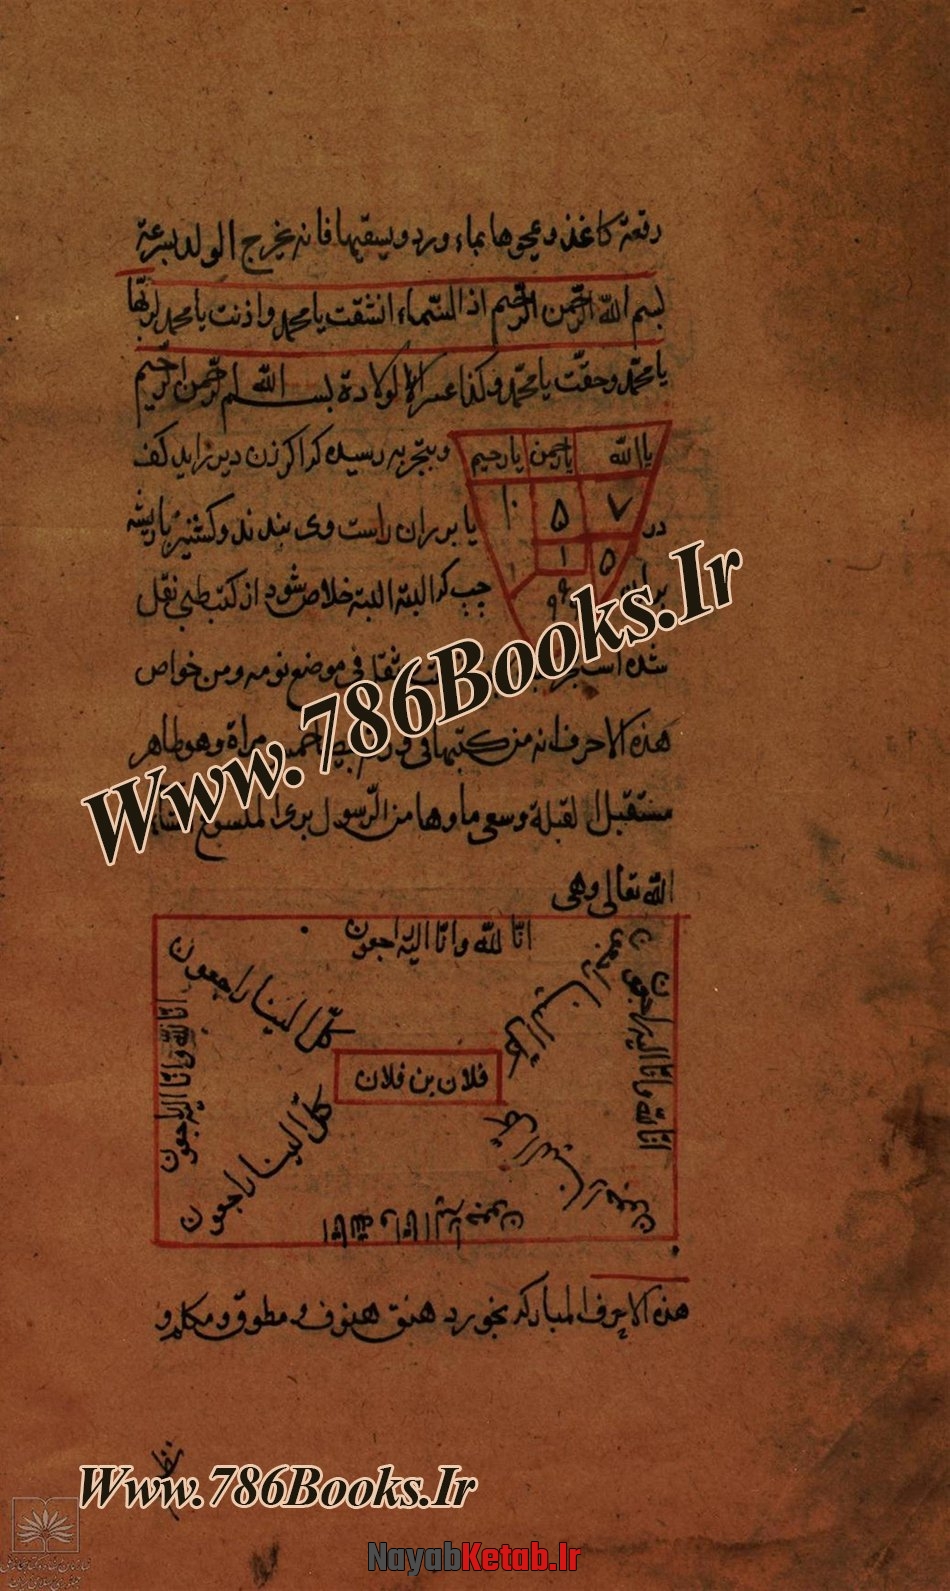 رقعة كاغذ و يمحوها بماء ورد ويسقيها فانه يخرج الولد بسرعة
بسم الله الرحمن الرحيم اذا السماء انشقت يا محمد واذنت يا محمد لربها
يا محمد وحقت يا محمد وكذا عسر الولادة بسم الله الرحمن الرحيم
يا الله يا رحمن يا رحيم
وبتجربه رسيده كه اكر زن دير زايد كف
۷ ۵ ۱۰
در
يا بر ران راست وى بندند و كشنيز با ريشه
۵ ۱ ۱
چپ كه البته البته خلاص شود از كتب طبى نقل
۹ ۹
شده است
فى موضع نومه ومن خواص
هذه الاحرف انه من كتبها فى
مراة وهو طاهر
مستقبل القبلة وسعى ماوها من الرسول برى الملسوع
الله تعالى وهى
انا لله وانا اليه راجعون
كل الينا راجعون
كل الينا راجعون
انا لله وانا اليه راجعون
انا لله وانا اليه راجعون
فلان بن فلان
كل الينا راجعون
كل الينا راجعون
انا لله وانا اليه راجعون
هذه الاحرف المباركه بخورد هنق هنوف و مطوق و مكلم و
Www.786Books.Ir
Www.786Books.Ir
NayabKetab.Ir